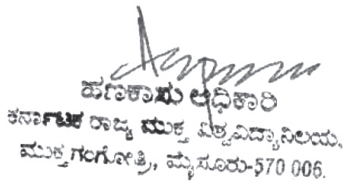 ಹಣಕಾಸು ಅಧಿಕಾರಿ
ಕರ್ನಾಟಕ ರಾಜ್ಯ ಮುಕ್ತ ವಿಶ್ವವಿದ್ಯಾನಿಲಯ,
ಮುಕ್ತಗಂಗೋತ್ರಿ, ಮೈಸೂರು-570 006.